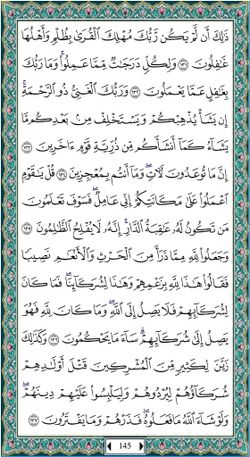 ذَٰلِكَ أَن لَّمْ يَكُن رَّبُّكَ مُهْلِكَ ٱلْقُرَىٰ بِظُلْمٍ وَأَهْلُهَا
غَٰفِلُونَ ١٣١ وَلِكُلٍّ دَرَجَٰتٌ مِّمَّا عَمِلُوا۟ ۚ وَمَا رَبُّكَ
بِغَٰفِلٍ عَمَّا يَعْمَلُونَ ١٣٢ وَرَبُّكَ ٱلْغَنِىُّ ذُو ٱلرَّحْمَةِ ۚ
إِن يَشَأْ يُذْهِبْكُمْ وَيَسْتَخْلِفْ مِنۢ بَعْدِكُم مَّا
يَشَآءُ كَمَآ أَنشَأَكُم مِّن ذُرِّيَّةِ قَوْمٍ ءَاخَرِينَ ١٣٣
إِنَّ مَا تُوعَدُونَ لَءَاتٍ ۖ وَمَآ أَنتُم بِمُعْجِزِينَ ١٣٤ قُلْ يَٰقَوْمِ
ٱعْمَلُوا۟ عَلَىٰ مَكَانَتِكُمْ إِنِّى عَامِلٌ ۖ فَسَوْفَ تَعْلَمُونَ
مَن تَكُونُ لَهُۥ عَٰقِبَةُ ٱلدَّارِ ۗ إِنَّهُۥ لَا يُفْلِحُ ٱلظَّٰلِمُونَ ١٣٥
وَجَعَلُوا۟ لِلَّهِ مِمَّا ذَرَأَ مِنَ ٱلْحَرْثِ وَٱلْأَنْعَٰمِ نَصِيبًا
فَقَالُوا۟ هَٰذَا لِلَّهِ بِزَعْمِهِمْ وَهَٰذَا لِشُرَكَآئِنَا ۖ فَمَا كَانَ
لِشُرَكَآئِهِمْ فَلَا يَصِلُ إِلَى ٱللَّهِ ۖ وَمَا كَانَ لِلَّهِ فَهُوَ
يَصِلُ إِلَىٰ شُرَكَآئِهِمْ ۗ سَآءَ مَا يَحْكُمُونَ ١٣٦ وَكَذَٰلِكَ
زَيَّنَ لِكَثِيرٍ مِّنَ ٱلْمُشْرِكِينَ قَتْلَ أَوْلَٰدِهِمْ
شُرَكَآؤُهُمْ لِيُرْدُوهُمْ وَلِيَلْبِسُوا۟ عَلَيْهِمْ دِينَهُمْ ۖ
وَلَوْ شَآءَ ٱللَّهُ مَا فَعَلُوهُ ۖ فَذَرْهُمْ وَمَا يَفْتَرُونَ ١٣٧
145